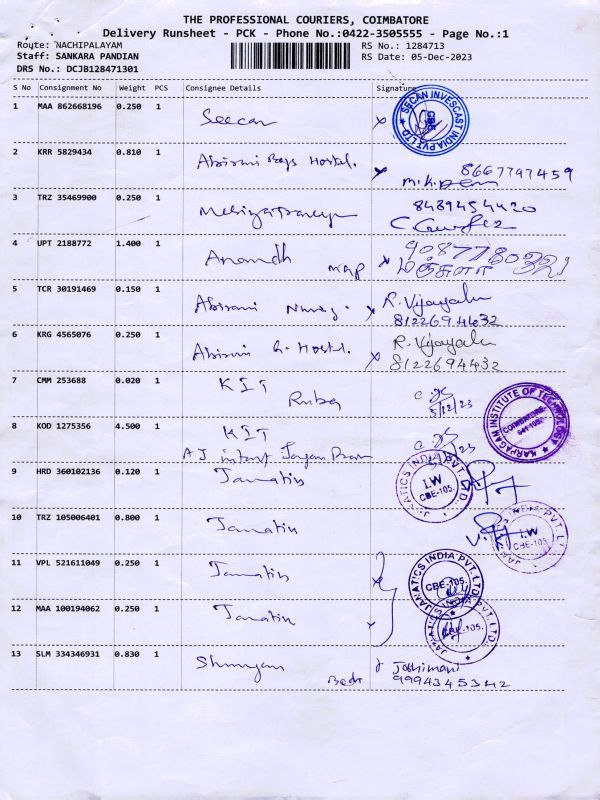 THE PROFESSIONAL COURIERS, COIMBATORE
Delivery Runsheet - PCK - Phone No.:0422-3505555 - Page No.:1
Route: NACHIPALAYAM
RS No.: 1284713
Staff: SANKARA PANDIAN
RS Date: 05-Dec-2023
DRS No.: DCJB128471301
S No Consignment No Weight PCS Consignee Details Signature
1 MAA 862668196 0.250 1 Seecan
SECAN INVESCAST INDIA PVT LTD
CBE
2 KRR 5829434 0.810 1 Abirami Boys Hostel.
8667747459
3 TRZ 35469900 0.250 1
8489454420
4 UPT 2188772 1.400 1 Anandh map
மஞ்சுளா
5 TCR 30191469 0.150 1 Abirami R. Vijayalu
812269 4432
6 KRG 4565076 0.250 1 Abirami G. Hostel. R. Vijayalu
8122694432
7 CMM 253688 0.020 1 KIT
Ruba
5/12/23
8 KOD 1275356 4.500 1 KIT
KARPAGAM INSTITUTE OF TECHNOLOGY
COIMBATORE-
641 105.
AJ instant
9 HRD 360102136 0.120 1 Janatics
JANATICS INDIA PVT. LTD.
I.W
CBE-105.
10 TRZ 105006401 0.800 1 Janatics
JANATICS INDIA PVT. LTD.
I.W
CBE-105.
11 VPL 521611049 0.250 1 Janatics
JANATICS INDIA PVT. LTD.
CBE-105.
12 MAA 100194062 0.250 1 Janatics
JANATICS INDIA PVT. LTD.
CBE-105.
13 SLM 334346931 0.830 1 Joshimani
9994345342